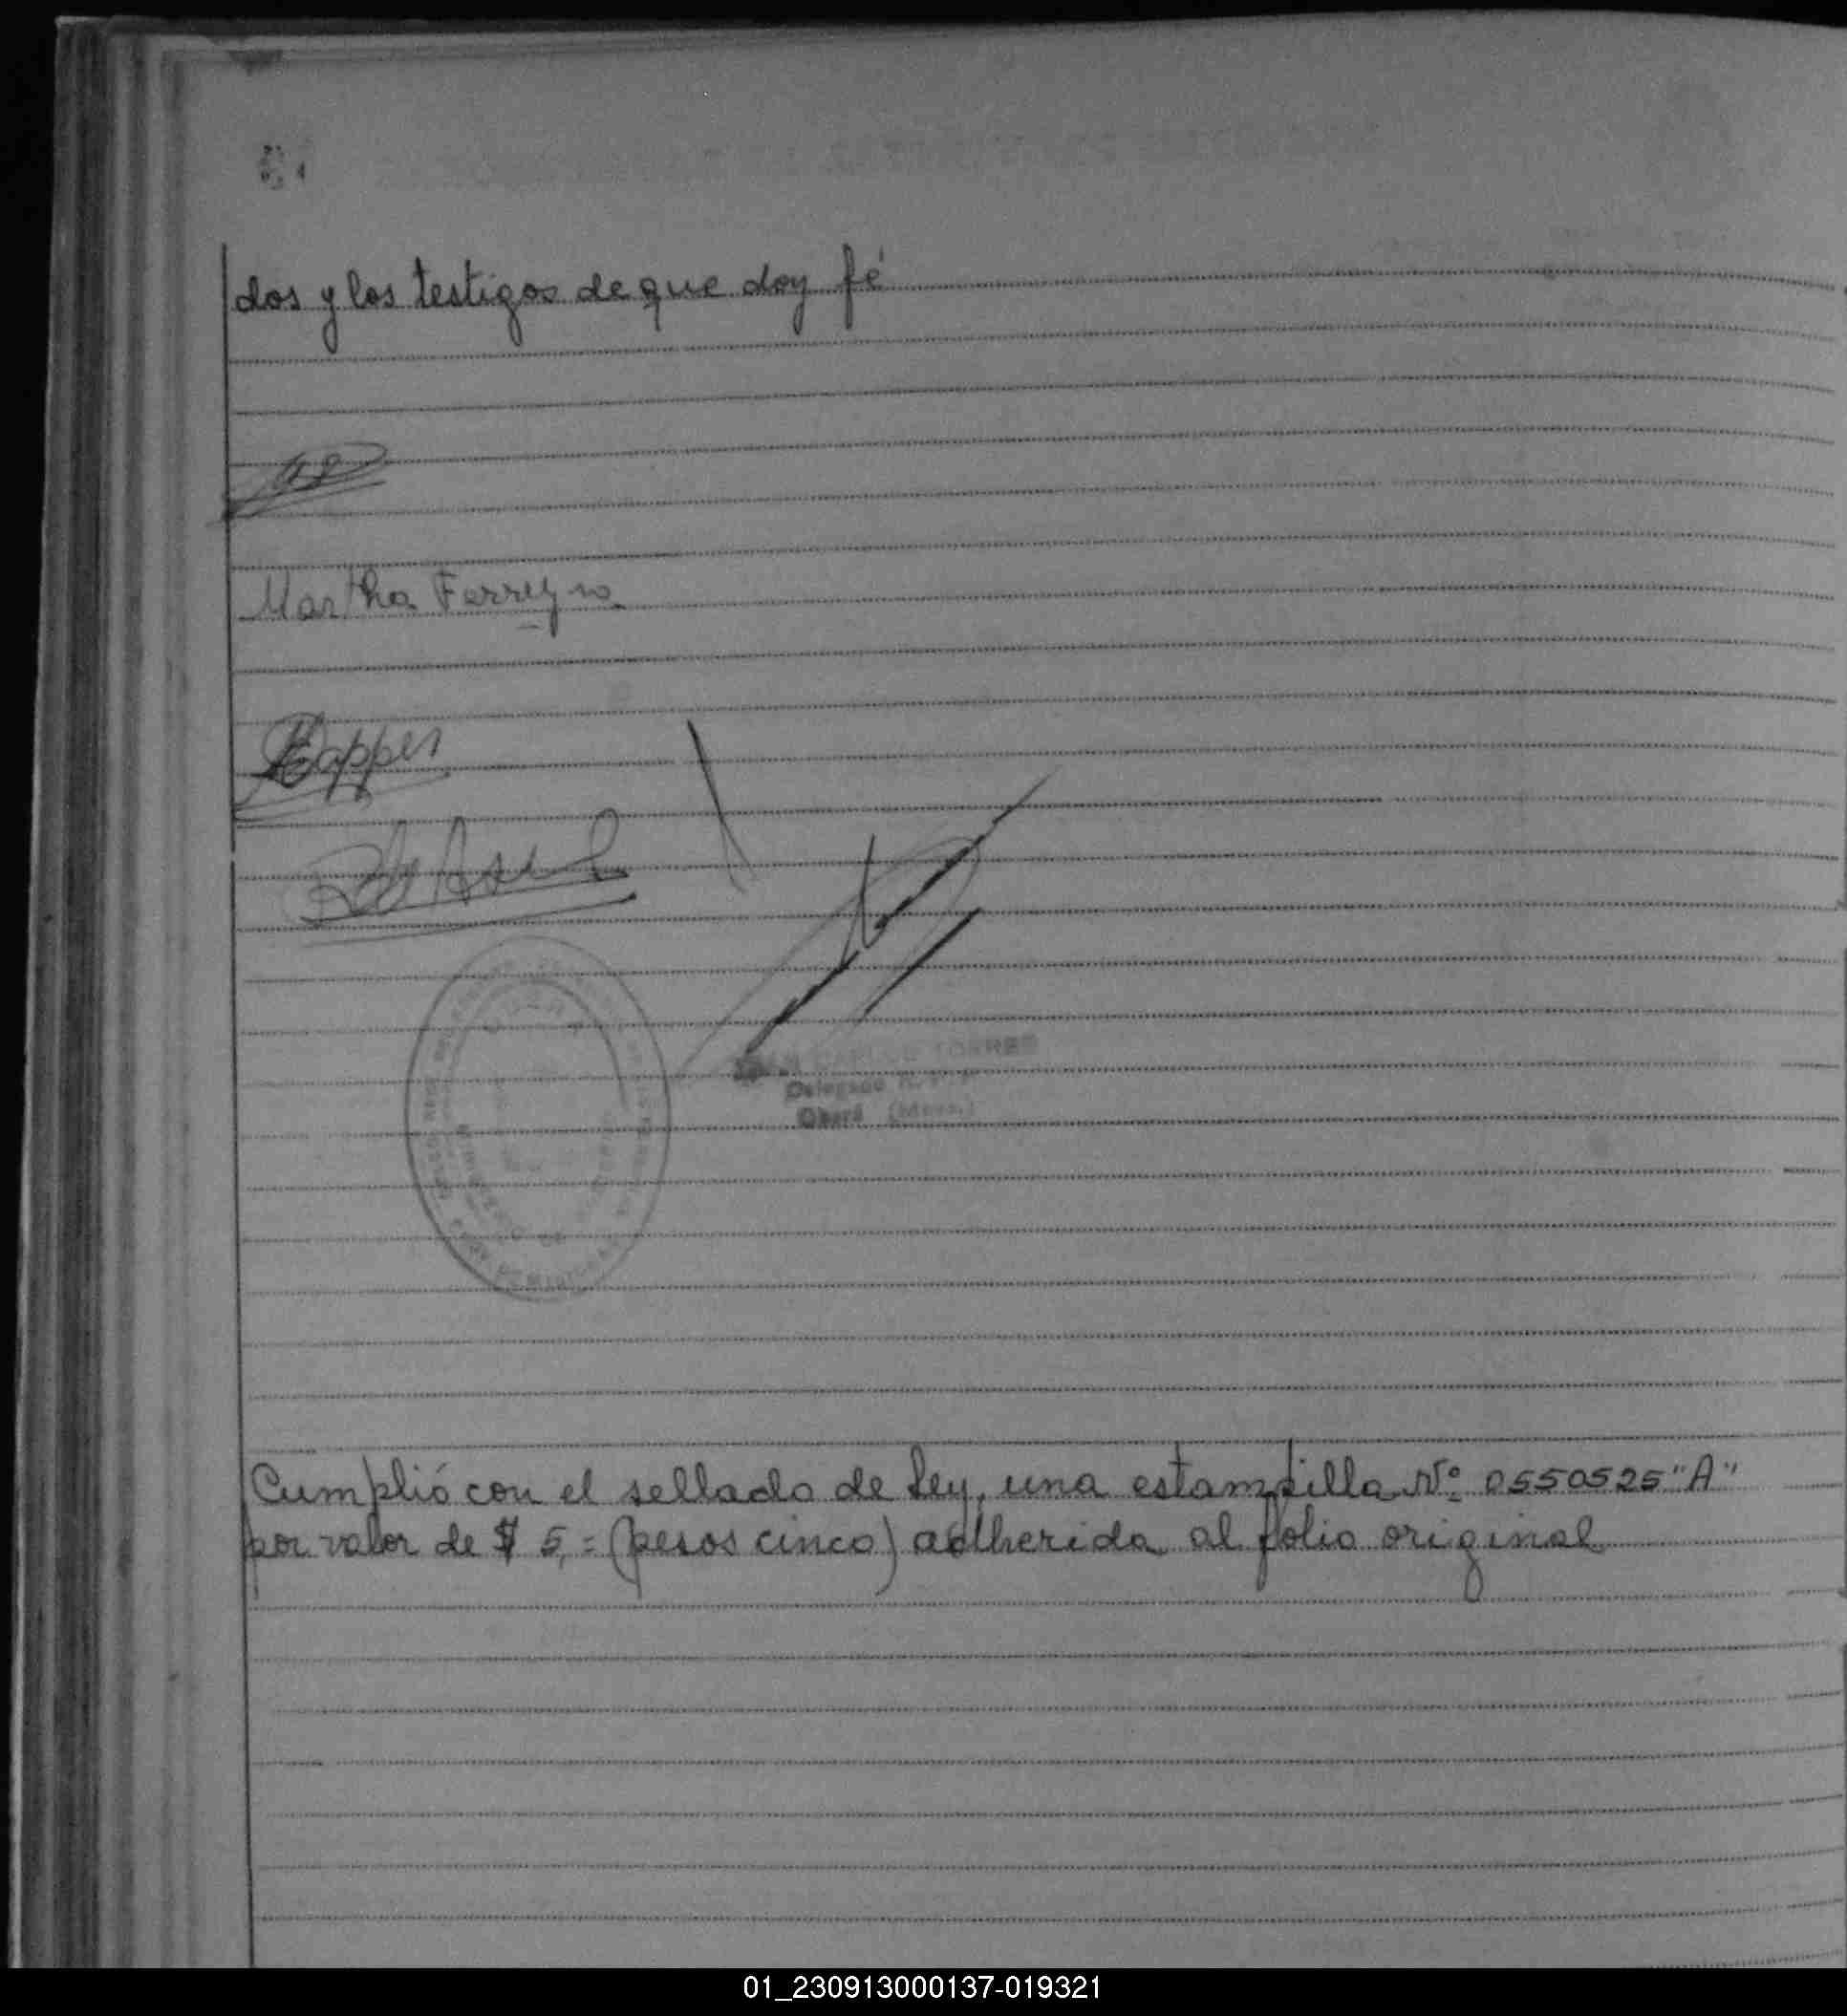 dos y los testigos de que doy fé
Martha Ferreyra
Kappes
CARLOS TORRES
Delegado
Oberá (Mnes.)
Cumplió con el sellado de Ley, una estampilla Nº 0550525 "A"
por valor de $ 5,= (pesos cinco) adherida al folio original
01_230913000137-019321